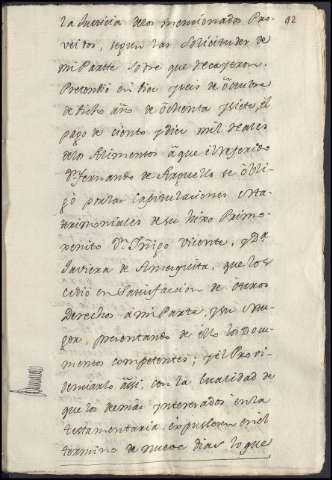 82
la Justicia de los mencionados Pro
veitos, segun las Solicitudes de
mi Parte sobre que decayeron.
Pretendió en diez y seis de Octubre
de dicho año de Ochenta y siete, el
pago de ciento y diez mil Reales
de los Alimentos á que el referido
Dn. Fernando de se obli
gó por las Capitulaciones Ma
trimoniales de su hixo Primo
xenito Dn. Iñigo Vicente, y Da.
Javiera de Amezqueta, que los
cedió en Satisfaccion de otros
derechos á mi Parte, y su
presentando de ello los Docu
mentos competentes; y el Provi
denciarlo assi, con la calidad de
que los demás Interesados en la
testamentaria expusiesen en el
termino de nueve dias lo que